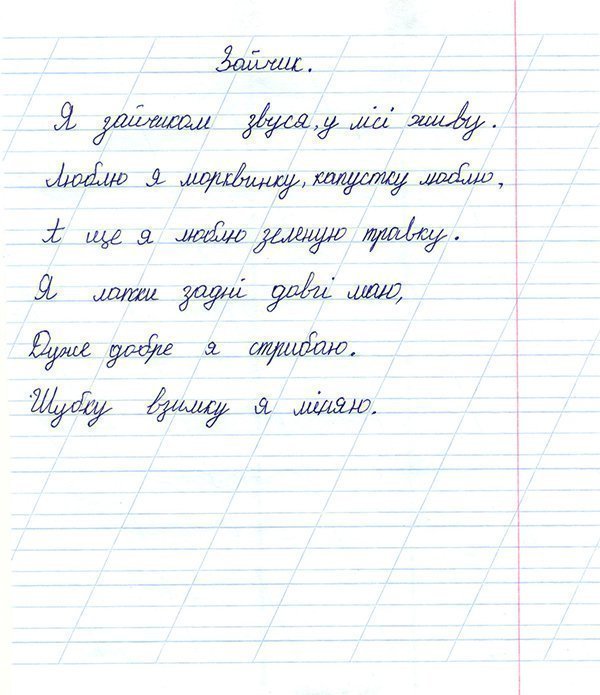 Зайчик.
Я зайчиком звуся, у лісі живу.
Люблю я морквинку, капустку люблю,
А ще я люблю зеленую травку.
Я лапки задні довгі маю,
Дуже добре я стрибаю.
Шубку взимку я міняю.